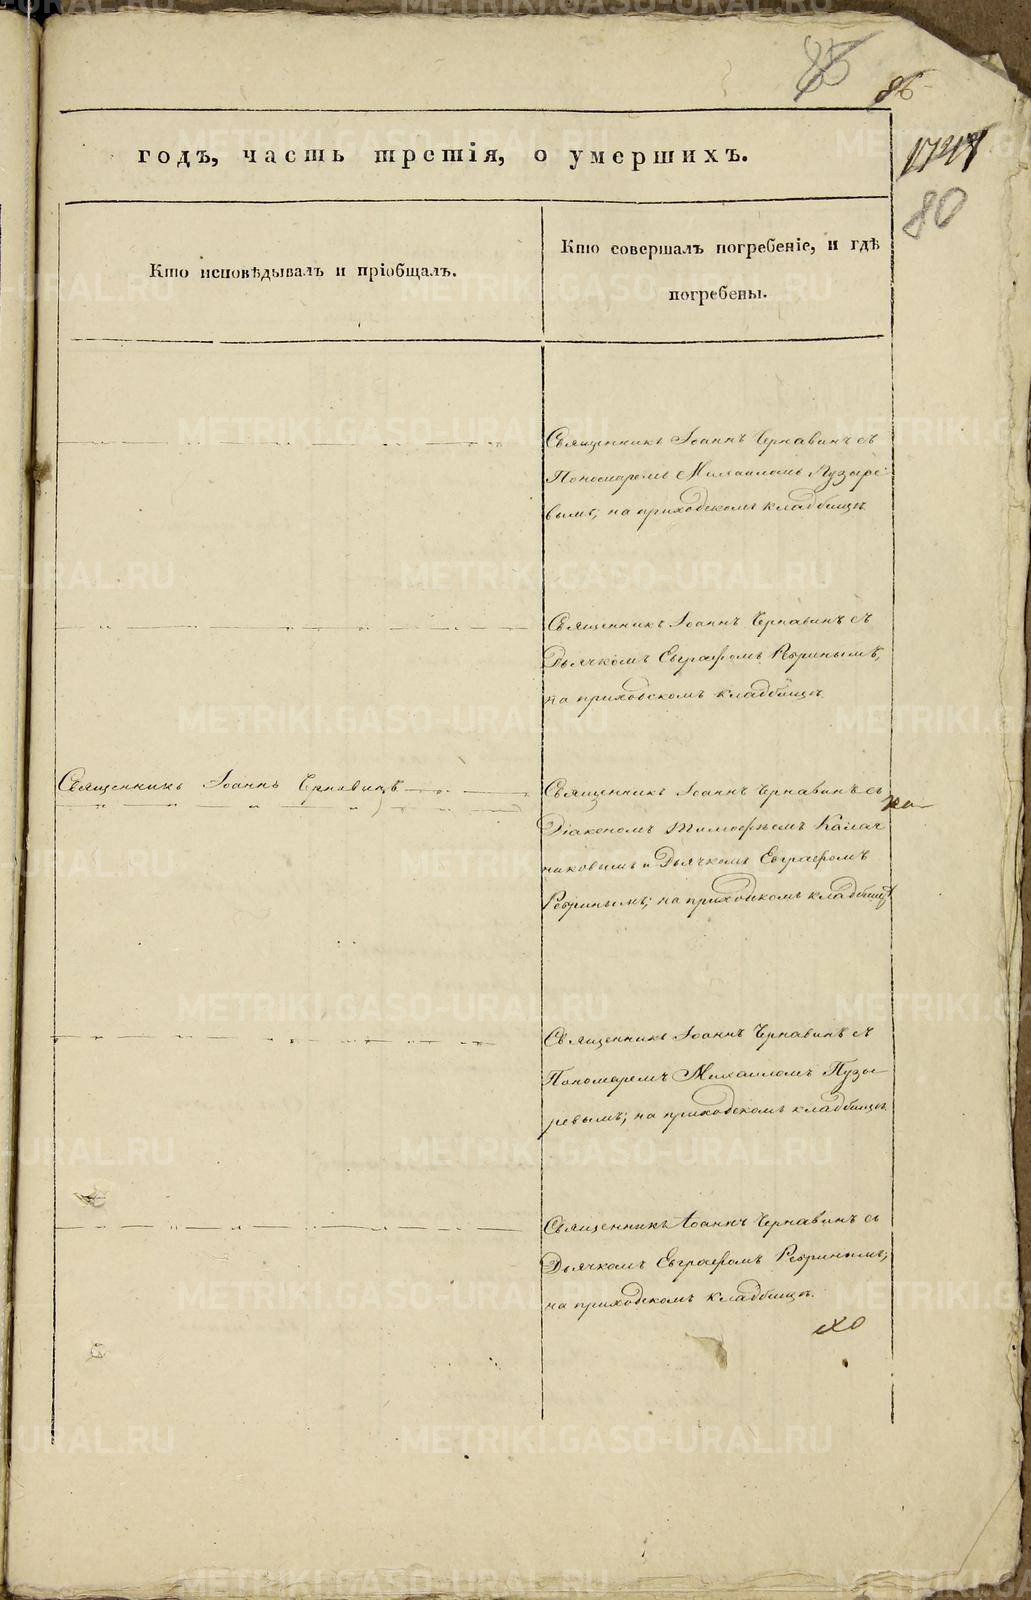 85
86
годъ, часть третія, о умершихъ.
80
Кто исповѣдывалъ и пріобщалъ.
Кто совершалъ погребеніе, и гдѣ
погребены.
Священникъ Іоаннъ Чернавинъ съ
Пономаремъ Михаиломъ Пузыре-
вымъ; на приходскомъ кладбищѣ
Священникъ Іоаннъ Чернавинъ съ
Дьячкомъ Евграфомъ Ребринымъ,
на приходскомъ кладбищѣ.
Священникъ Іоаннъ Чернавинъ
Священникъ Іоаннъ Чернавинъ съ
Діакономъ Тимофѣемъ Калач
никовымъ и Дьячкомъ Евграфомъ
Ребринымъ; на приходскомъ кладбищѣ
Священникъ Іоаннъ Чернавинъ съ
Пономаремъ Михаиломъ Пузы-
ревымъ; на приходскомъ кладбищѣ
Священникъ Іоаннъ Чернавинъ съ
Дьячкомъ Евграфомъ Ребринымъ;
на приходскомъ кладбищѣ.
METRIKI.GASO-URAL.RU